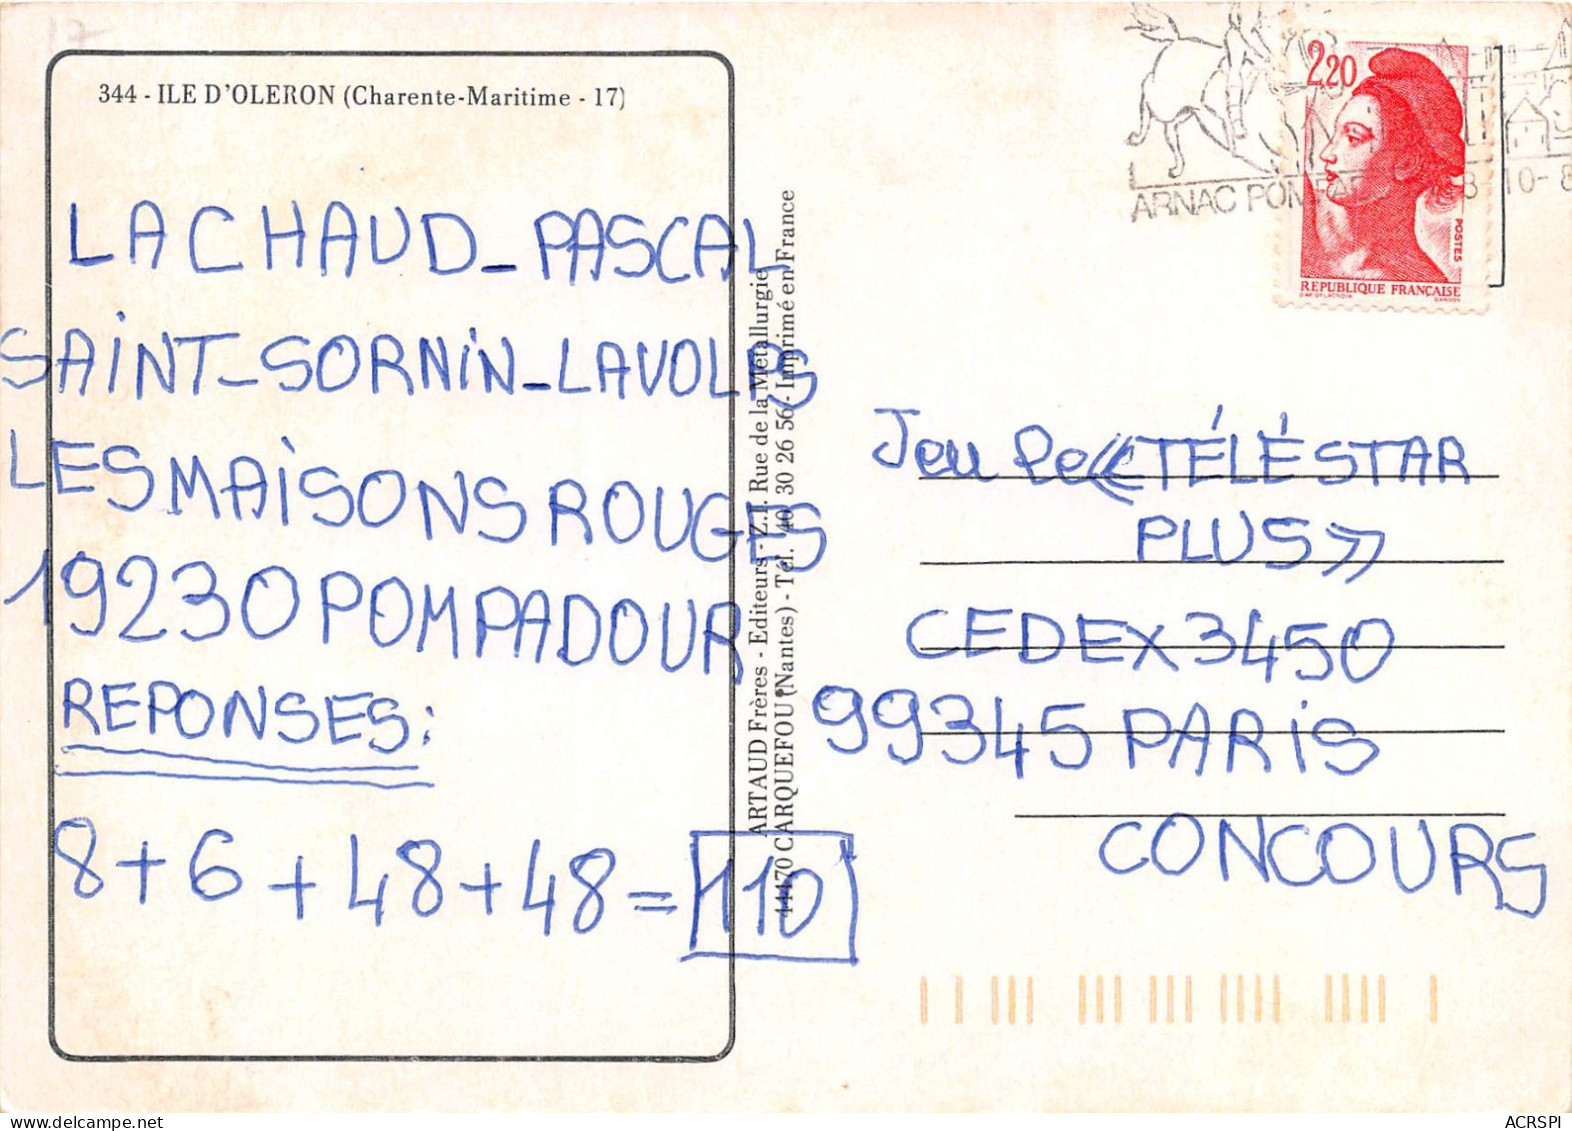 344 - ILE D'OLERON (Charente-Maritime - 17)
LACHAUD_PASCAL
SAiNT_SORNiN_LAVOLPS
LES MAiSONS ROUGES
19230 POMPADOUR
REPONSES:
8+6+48+48=110
ARTAUD Frères - Editeurs - Z.I. Rue de la Métallurgie
44470 CARQUEFOU (Nantes) - Tél. 40 30 26 56 - Imprimé en France
ARNAC
10-8
2,20
POSTES
REPUBLIQUE FRANÇAISE
Jeu « TÉLÉSTAR
PLUS »
CEDEX 3450
99345 PARiS
CONCOURS
ACRSPI